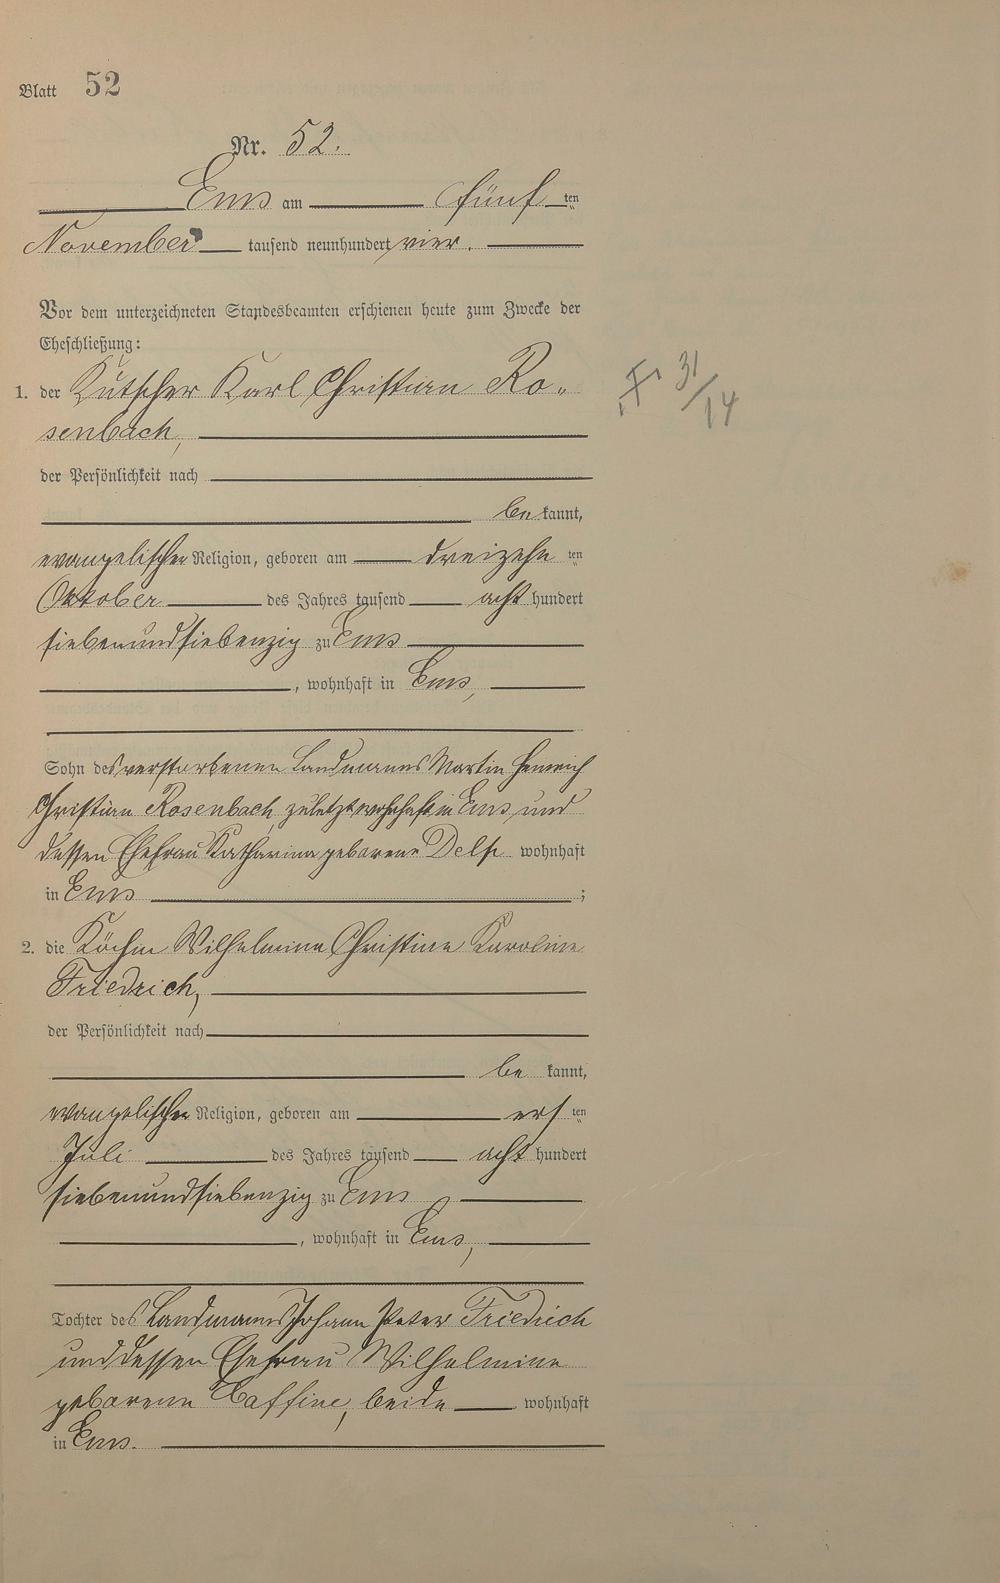 Blatt 52
Nr. 52.
Ems am fünf ten
November tausend neunhundert vier.
Vor dem unterzeichneten Standesbeamten erschienen heute zum Zwecke der
Eheschließung:
1. der Kutscher Karl Christian Ro-
senbach,
der Persönlichkeit nach
be kannt,
evangelischer Religion, geboren am dreizehn ten
Oktober des Jahres tausend acht hundert
siebenundsiebenzig zu Ems
, wohnhaft in Ems,
Sohn des verstorbenen Landmannes Martin Heinrich
Christian Rosenbach, zuletzt wohnhaft in Ems und
dessen Ehefrau Katharina geborene wohnhaft
in Ems ;
2. die Köchin Wilhelmine Christine Karoline
Friedrich,
der Persönlichkeit nach
be kannt,
evangelischer Religion, geboren am ers ten
Juli des Jahres tausend acht hundert
siebenundsiebenzig zu Ems
, wohnhaft in Ems,
Tochter des Landmanns Johann Peter Friedrich
und dessen Ehefrau Wilhelmine
geborene beide wohnhaft
in Ems.
31/14